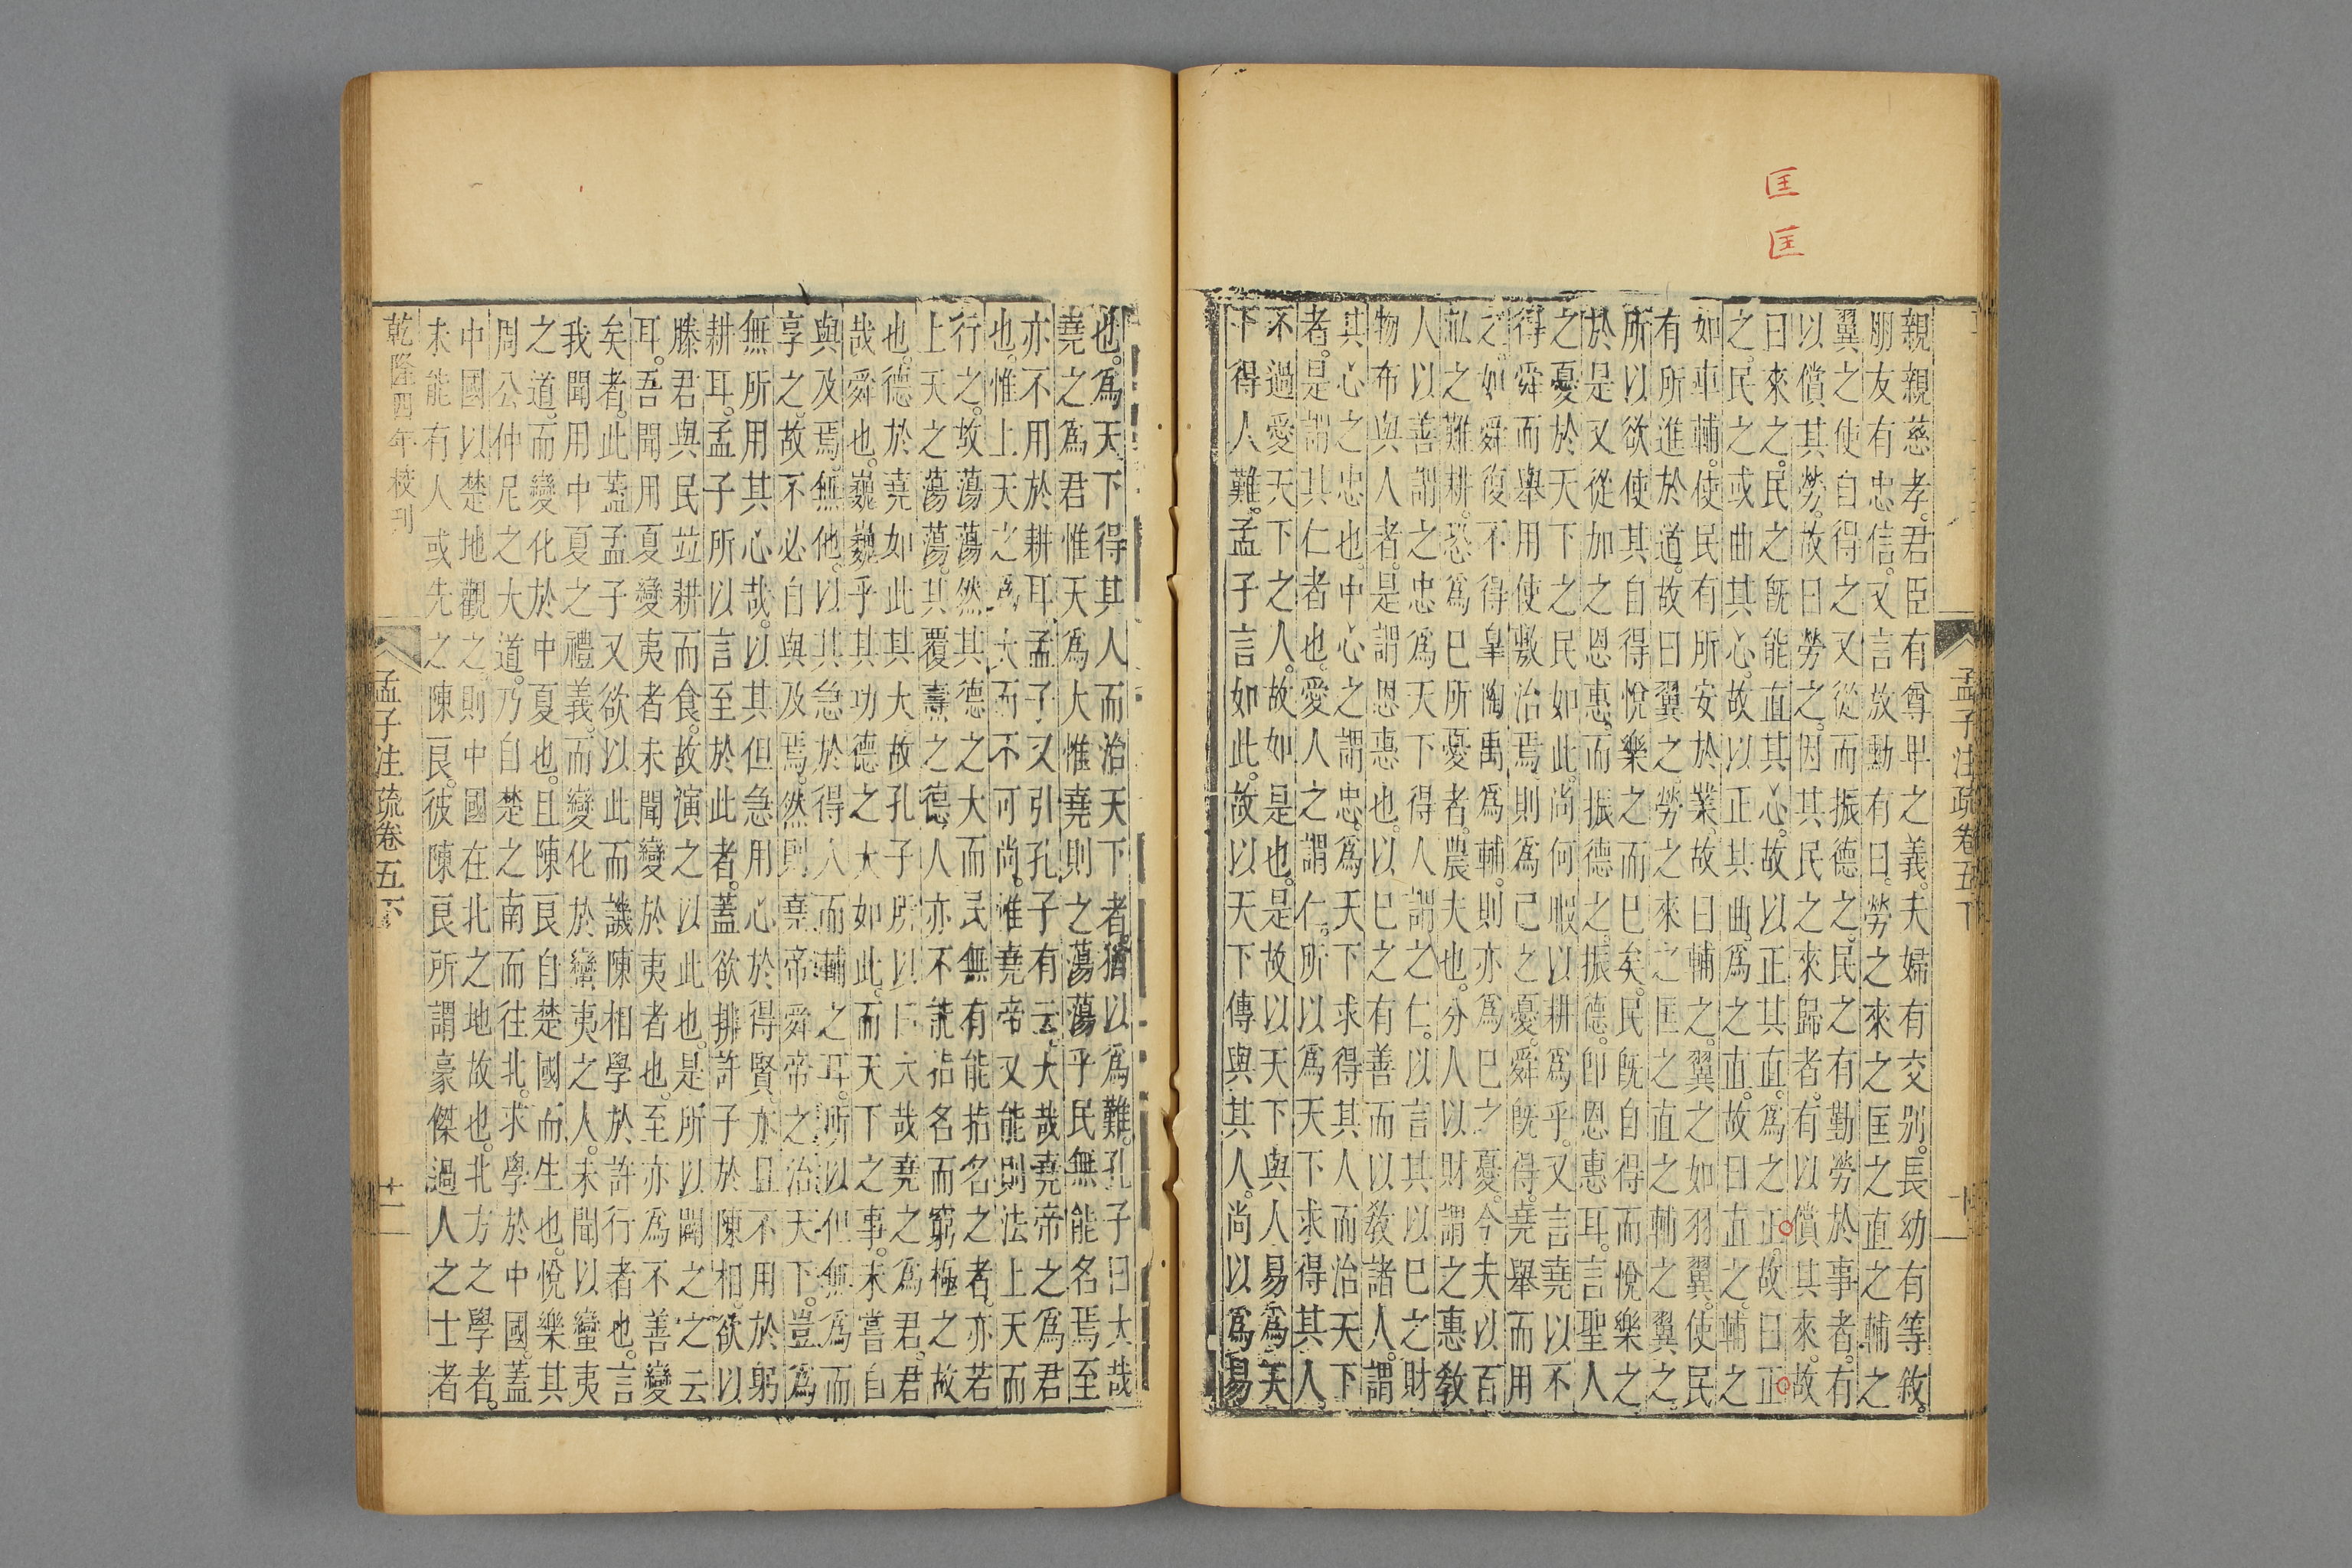 匡
匡
親親慈孝。君臣有尊卑之義。夫婦有交别。長幼有等敘。
朋友有忠信。又言放勳有曰。勞之來之匡之直之輔之
翼之使自得之又從而振德之。民之有勤勞於事者。有
以償其勞。故曰勞之。因其民之來歸者。有以償其來。故
曰來之。民之旣能直其心。故以正其直。爲之正故曰正
之。民之或曲其心。故以正其曲。爲之直。故曰直之。輔之
如車輔。使民有所安於業。故曰輔之。翼之如羽翼。使民
有所進於道。故曰翼之。勞之來之匡之直之輔之翼之。
所以欲使其自得悅樂之而巳矣。民旣自得而悅樂之。
於是又從加之恩惠。而振德之。振德。卽恩惠耳。言聖人
之憂於天下之民如此。尚何暇以耕爲乎。又言堯以不
得舜而舉用使敷治焉。則爲己之憂。舜旣得。堯舉而用
之。如舜復不得皐陶禹爲輔。則亦爲巳之憂。今夫以百
畝之難耕。恐爲巳所憂者。農夫也。分人以財謂之惠教
人以善謂之忠爲天下得人謂之仁。以言其以巳之財
物布與人者。是謂恩惠也。以巳之有善而以敎諸人。謂
其心之忠也。中心之謂忠。爲天下求得其人而治天下
者。是謂其仁者也。愛人之謂仁。所以爲天下求得其人。
不過愛天下之人。故如是也。是故以天下與人易爲。天
下得人難。孟子言如此。故以天下傳與其人。尚以爲易
孟子注疏卷五下
也。爲天下得其人而治天下者。猶以爲難。孔子曰大哉
堯之爲君惟天爲大惟堯則之蕩蕩乎民無能名焉至
亦不用於耕耳。孟子又引孔子有云。大哉堯帝之爲君
也。惟上天之爲大而不可尚。惟堯帝又能則法上天而
行之。故蕩蕩然其德之大而民無有能㧞名之者。亦若
上天之蕩蕩。其覆燾之德人亦不能指名而窮極之故
也。德於堯如此其大故孔子所以曰大哉堯之爲君。君
哉舜也。巍巍乎其功德之大如此。而天下之事。未嘗自
與及焉。無他。以其急於得人而輔之耳。所以但無爲而
享之。故不必自與及焉。然則堯帝舜帝之治天下。豈爲
無所用其心哉。以其但急用心於得賢。亦且不用於躬
耕耳。孟子所以言至於此者。蓋欲排許子於陳相。欲以
滕君與民竝耕而食。故演之以此也。是所以闢之之云
耳。吾聞用夏變夷者未聞變於夷者也。至亦爲不善變
矣者。此蓋孟子又欲以此而譏陳相學於許行者也。言
我聞用中夏之禮義。而變化於蠻夷之人。未聞以蠻夷
之道。而變化於中夏也。且陳良自楚國而生也。悅樂其
周公仲尼之大道。乃自楚之南而往北。求學於中國。蓋
中國以楚地觀之。則中國在北之地故也。北方之學者。
未能有人或先之陳良。彼陳良所謂豪傑過人之士者
乾隆四年校刊
孟子注疏卷五下
十一